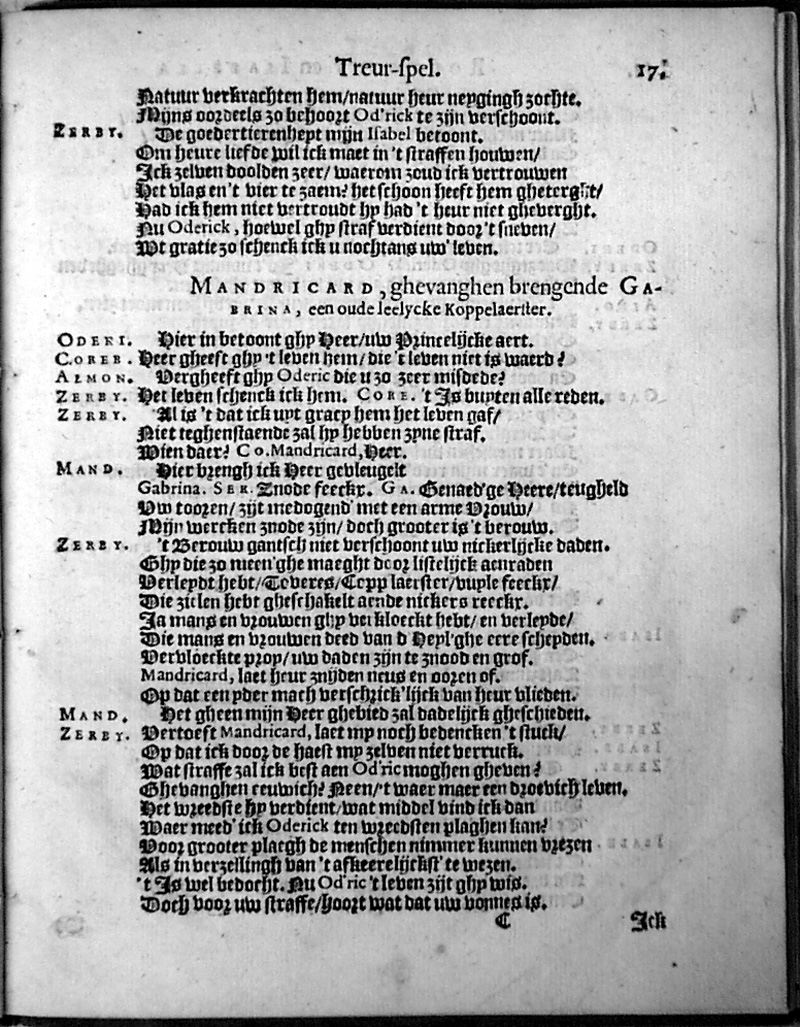 Treur-spel. 17.
Natuur verkrachten hem/natuur heur neygingh zochte.
Mijns oordeels zo behoort Od'rick te zijn verschoont.
ZERBY. De goedertierenheyt mijn Isabel betoont.
Om heure liefde wil ick maet in 't straffen houwen/
Ick zelven doolden zeer/ waerom zoud ick vertrouwen
Het vlas en 't vier te zaem? het schoon heeft hem gheterght/
Had ick hem niet vertroudt hy had 't heur niet gheverght.
Nu Oderick, hoewel ghy straf verdient door 't sneven/
Wt gratie zo schenck ick u nochtans uw' leven.
MANDRICARD, ghevanghen brengende GA-
BRINA, een oude leelycke Koppelaerster.
ODERI. Hier in betoont ghy Heer/uw Princelijcke aert.
COREB. Heer gheeft ghy 't leven hem/ die 't leven niet is waerd?
ALMON. Vergheeft ghy Oderic die u zo zeer misdede?
ZERBY. Het leven schenck ick hem. CORE. 't Is buyten alle reden.
ZERBY. Al is 't dat ick uyt gracy hem het leven gaf/
Niet teghenstaende zal hy hebben zyne straf.
Wien daer? Co. Mandricard, Heer.
MAND. Hier brengh ick Heer gevleugelt
Gabrina. SER. Znode feeckx. GA. Genaed'ge Heere/teugheld
Uw tooren/ zijt medogend' met een arme Vrouw/
Mijn wercken znode zijn/ doch grooter is 't berouw.
ZERBY. 't Berouw gantsch niet verschoont uw nickerlijcke daden.
Ghy die zo meen'ghe maeght door listelijck aenraden
Verleydt hebt/Toveres/Teyp laerster/vuyle feeckx/
Die zielen hebt gheschakelt aende nickers reeckx.
Ja mans en vrouwen ghy verkloeckt hebt/ en verleyde/
Die mans en vrouwen deed van d' Heyl'ghe eere scheyden.
Vervloeckte prop/ uw daden zijn te znood en grof.
Mandricard, laet heur znijden neus en ooren of.
Op dat een yder mach verschrick'lijck van heur vlieden.
MAND. Het gheen mijn Heer ghebied zal dadelijck gheschieden.
ZERBY. Vertoeft Mandricard, laet my noch bedencken 't stuck/
Op dat ick door de haest my zelven niet verruck.
Wat straffe zal ick best aen Od'ric moghen gheven?
Ghevanghen eeuwich? Neen/'t waer maer een droevich leven.
Het wreedste hy verdient/wat middel vind ick dan
Waer meed' ick Oderick ten wreedsten plaghen kan?
Voor grooter plaegh de menschen nimmer kunnen vrezen
Als in verzellingh van 't afkeerelijckst' te wezen.
't Is wel bedocht. Nu Od'ric 't leven zijt ghy wis.
Doch voor uw straffe/hoort wat dat uw vonnes is.
C Ick